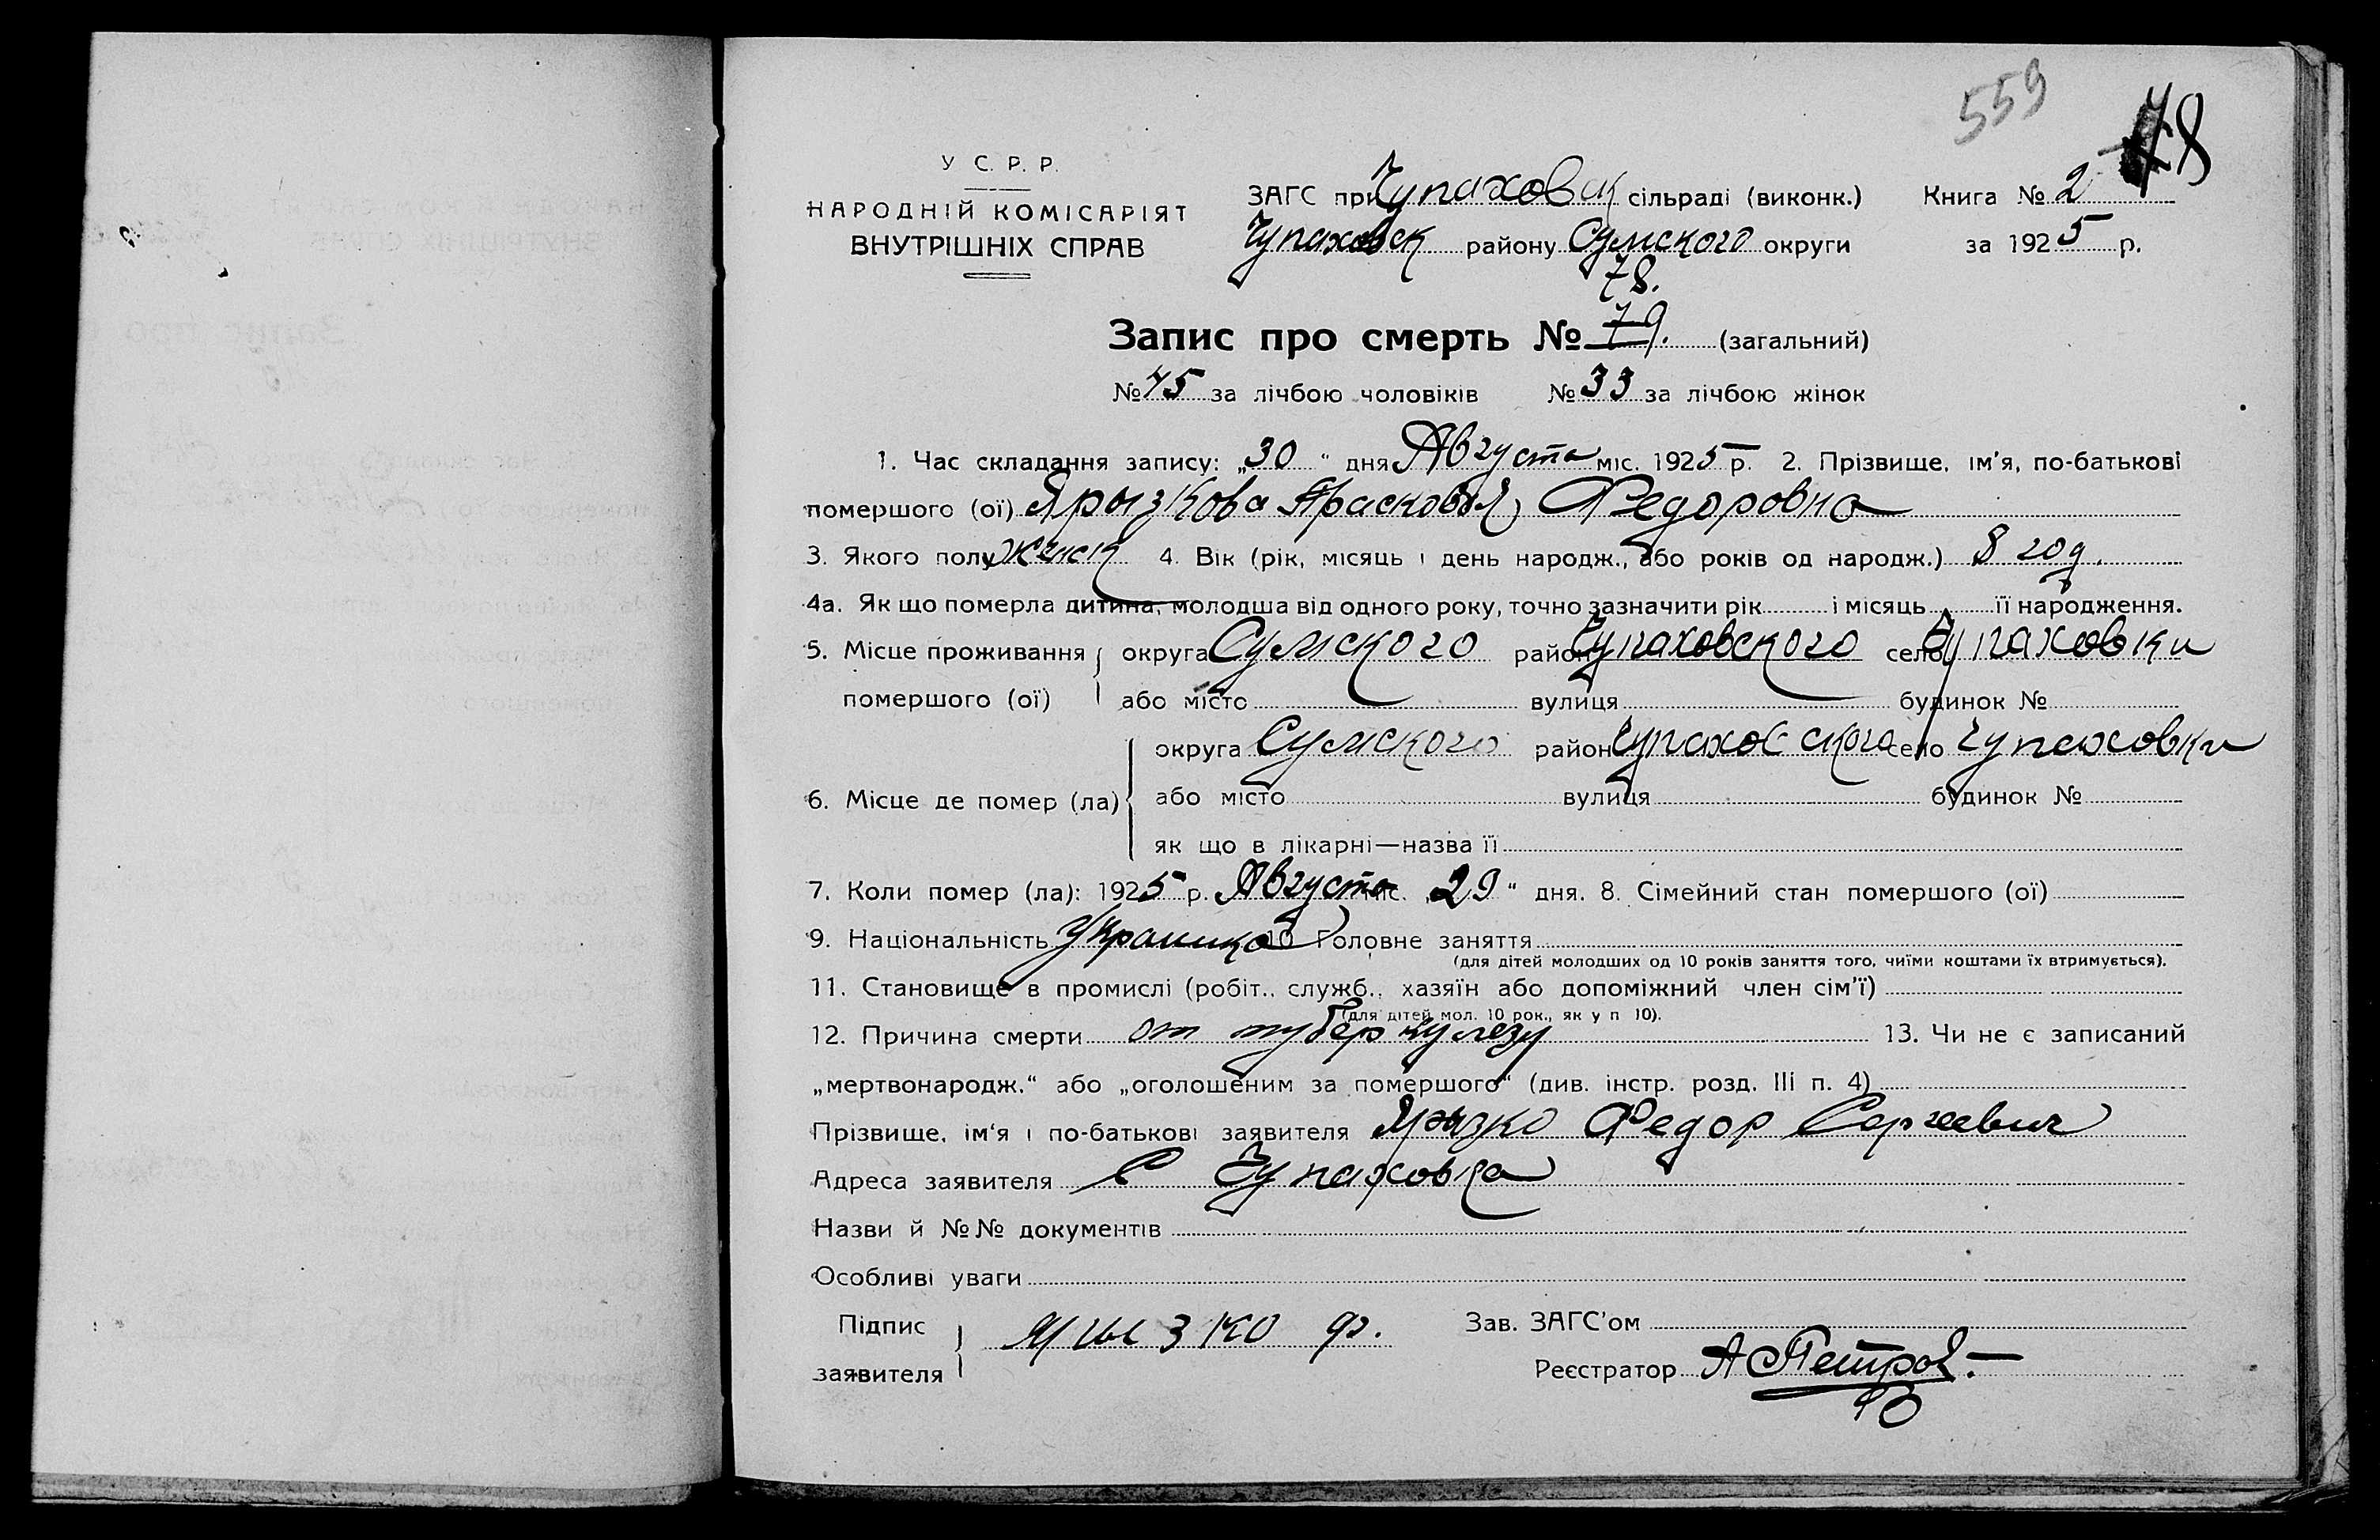 559
78
У С. Р. Р.
НАРОДНІЙ КОМІСАРІЯТ
ВНУТРІШНІХ СПРАВ
ЗАГС при Чупаховск сільраді (виконк.) Книга № 2
Чупаховск району Сумского округи за 1925 р.
78.
Запис про смерть № 79. (загальний)
№ 45 за лічбою чоловіків № 33 за лічбою жінок
1. Час складання запису: „30“ дня Августа міс. 1925 р. 2. Прізвище, ім'я, по-батькові
помершого (ої) Ярызкова Прасковья Федоровна
3. Якого полу женск 4. Вік (рік, місяць і день народж., або років од народж.) 8 год.
4а. Як що померла дитина, молодша від одного року, точно зазначити рік і місяць її народження.
5. Місце проживання округа Сумского район Чупаховского село Чупаховки
помершого (ої) або місто вулиця будинок №
округа Сумского район Чупаховского село Чупаховки
6. Місце де помер (ла) або місто вулиця будинок №
як що в лікарні—назва її
7. Коли помер (ла): 1925 р. Августа міс. „29“ дня. 8. Сімейний стан помершого (ої)
9. Національність Украинка 10 Головне заняття
(для дітей молодших од 10 років заняття того, чиїми коштами їх втримується).
11. Становище в промислі (робіт., служб., хазяїн або допоміжний член сім'ї)
(для дітей мол. 10 рок., як у п 10).
12. Причина смерти от туберкулезу 13. Чи не є записаний
„мертвонародж.“ або „оголошеним за помершого“ (див. інстр. розд. III п. 4)
Прізвище, ім'я і по-батькові заявителя Федор Сергеевич
Адреса заявителя С Чупаховка
Назви й №№ документів
Особливі уваги
Підпис Зав. ЗАГС'ом
заявителя Реєстратор А Петров